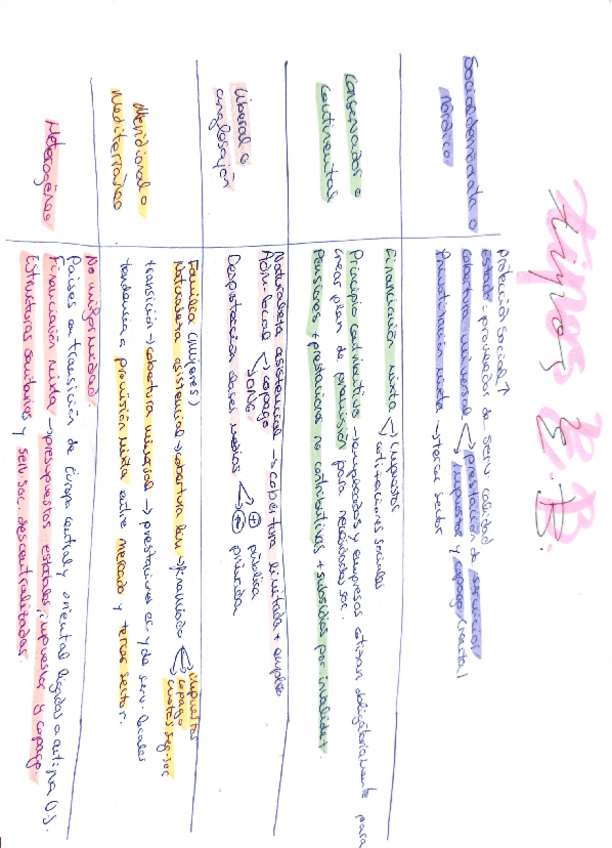 tipos E.B.
Socialdemócrata o
nórdico
protección social ↑
estado = proveedor de serv. calidad
cobertura universal < prestación de servicios
impuestos y copago (resta)
financiación mixta → tercer sector
Conservador o
continental
financiación mixta < impuestos
cotizaciones sociales
Principio contributivo → empleados y empresas cotizan obligatoriamente para
crear plan de previsión para necesidades soc.
Pensiones + prestaciones no contributivas + subsidios por invalidez.
liberal o
anglosajón
Naturaleza asistencial → cobertura limitada + empleo
Adm. local < copago
ONG
Desprotección clases medias < + pública
- privada
Meridional o
Mediterráneo
Familia (mujeres)
Naturaleza asistencial → cobertura → financiado < impuestos
copago
cuotas seg. soc
transición → cobertura universal → prestaciones ec. y de serv. locales
tendencia a provisión mixta entre mercado y tercer sector.
Heterogéneo
No uniformidad.
Países en transición de Europa central y oriental ligados a antigua US.
Financiación mixta → presupuestos estatales, impuestos y copago.
Estructuras sanitarias y serv. soc. descentralizadas.